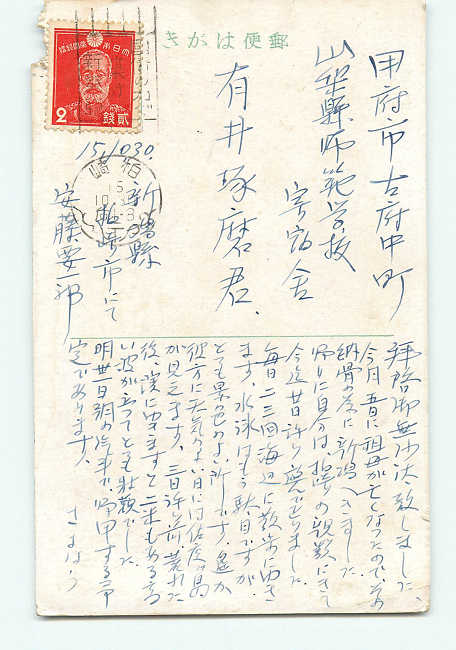 郵便はがき
大日本帝國郵便
2 貳錢
甲府市古府中町
山梨縣師範学校
寄宿舎
有井琢磨君、
15.10.30.
柏崎
新潟縣
柏崎市にて
安藤要一郎
拝啓御無沙汰致しました、
今月五日に祖母が亡くなったので、その
納骨の為に新潟へきました
帰りに自分は柏崎の親類にきて
今迄廿日許り遊んでおりました
毎日二三回海辺に散歩にゆき
ます、水泳はもう駄目ですが
とても景色のよい所です、遙か
彼方に天気のよい日には佐渡ヶ島
が見えます、三日許り前荒れた
後、濱にゆきますと二米もある高
い波が立ってとても壮観でした
明卅一日朝の汽車で帰甲する予
定であります、
さようなら